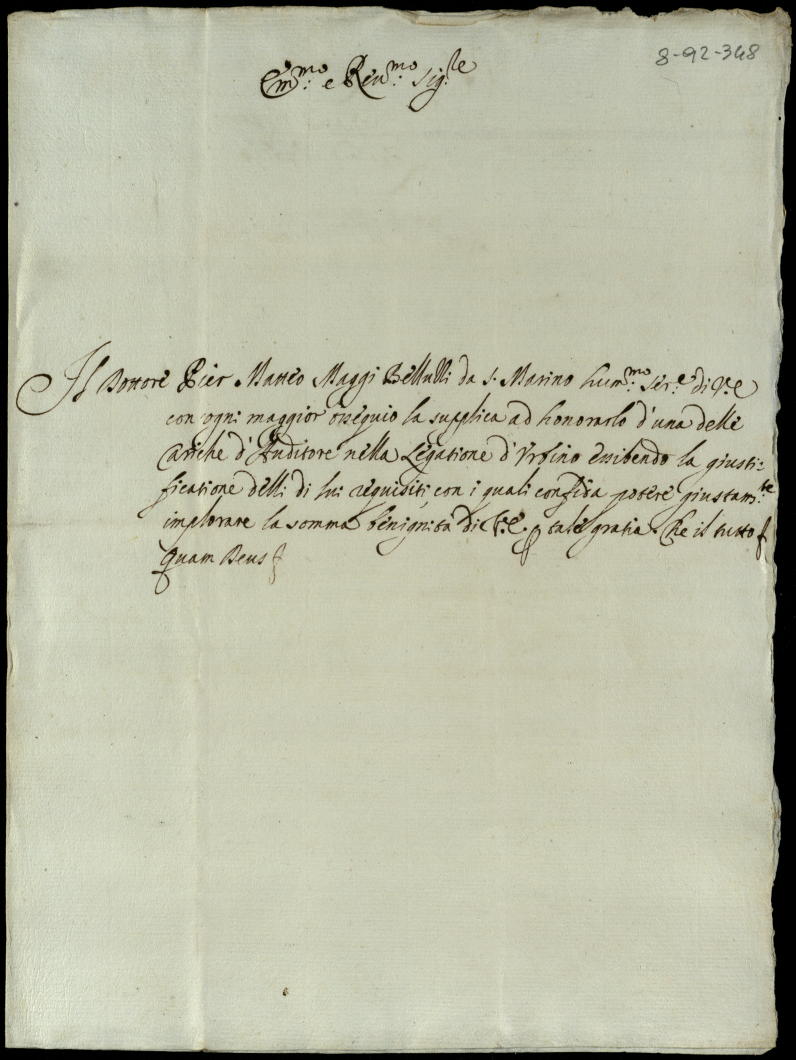 8-92-348
Em.mo e Reu.mo Sig.re
Il Dottore Pier Matteo Maggi Bellulli da S. Marino hum.mo Ser.e di V.E
con ogni maggior ossequio la supplica ad honorarlo d'una delle
cariche d'Auditore nella Legatione d'Urbino essibendo la giusti:
ficatione delli di lui requisiti, con i quali confida potere giustam.te
implorare la somma benignità di V.E. p tale gratia. Che il tutto
Quam Deus